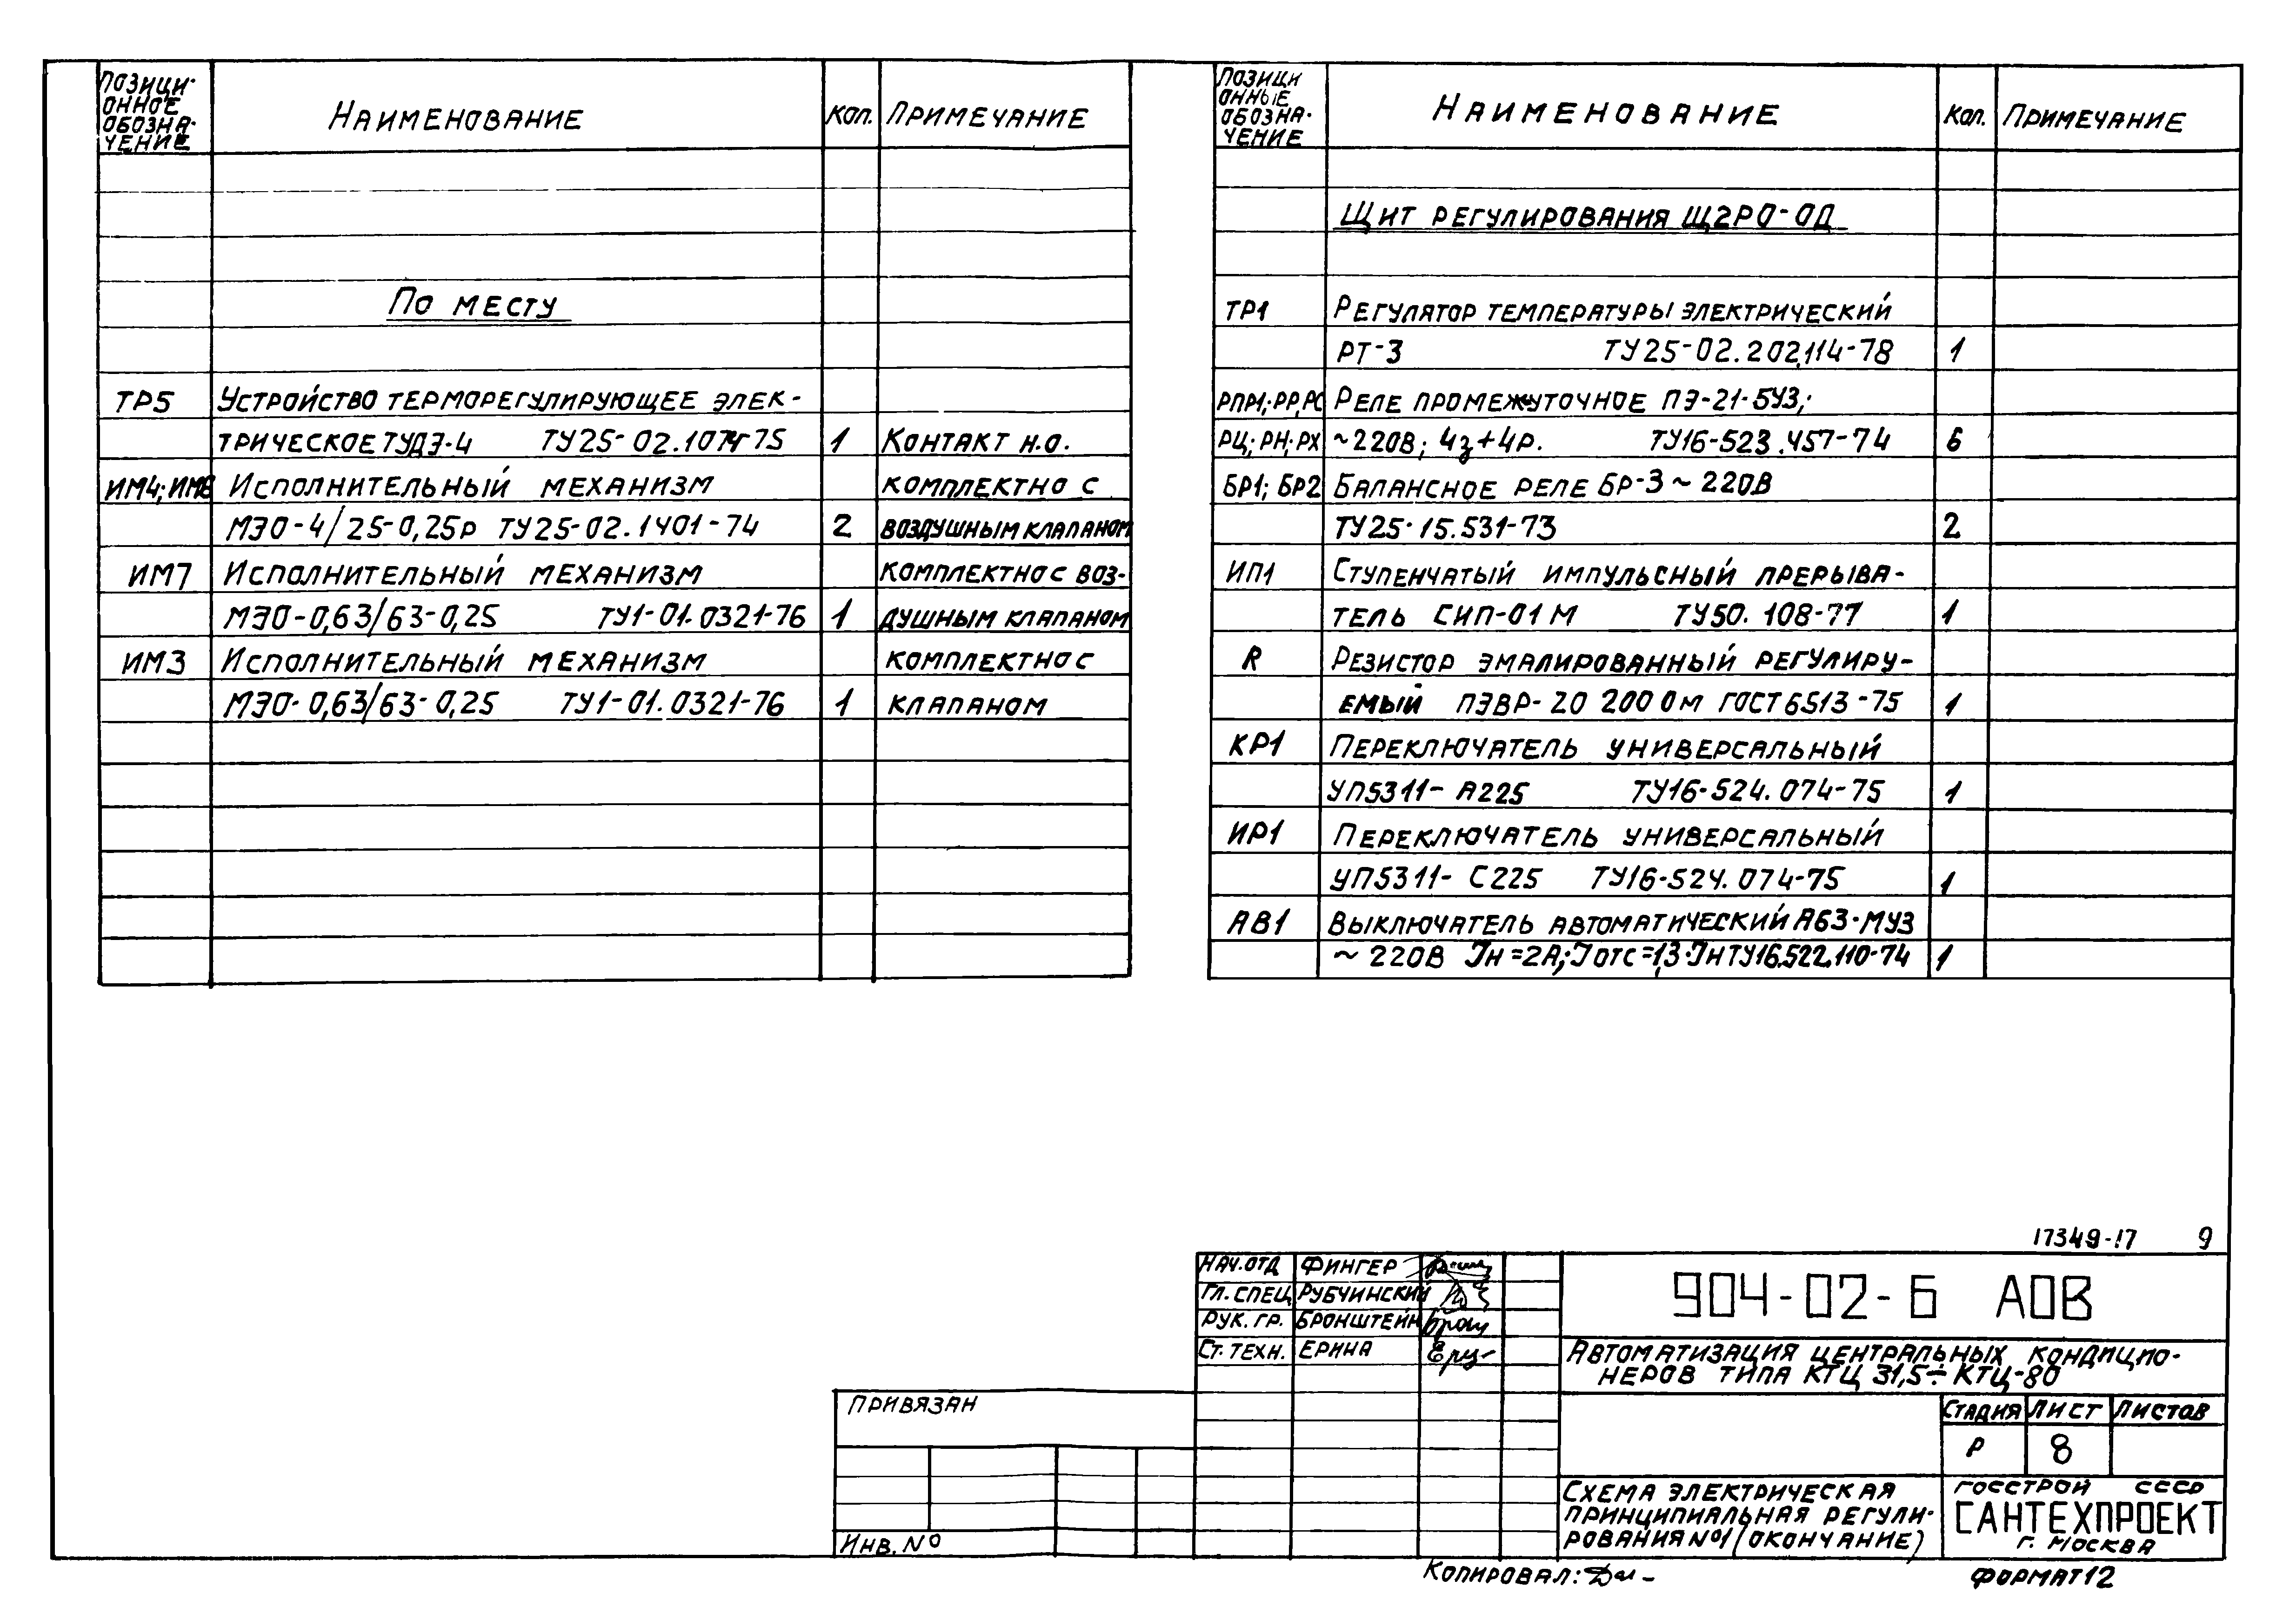 ПОЗИЦИ-
ОННОЕ
ОБОЗНА-
ЧЕНИЕ
НАИМЕНОВАНИЕ
КОЛ.
ПРИМЕЧАНИЕ
ПО МЕСТУ
ТР5 УСТРОЙСТВО ТЕРМОРЕГУЛИРУЮЩЕЕ ЭЛЕК-
ТРИЧЕСКОЕ ТУДЭ-4 ТУ25-02. 1 КОНТАКТ Н.О.
ИМ4; ИСПОЛНИТЕЛЬНЫЙ МЕХАНИЗМ КОМПЛЕКТНО С
МЭО-4/25-0,25Р ТУ25-02.1401-74 2 ВОЗДУШНЫМ КЛАПАНОМ
ИМ7 ИСПОЛНИТЕЛЬНЫЙ МЕХАНИЗМ КОМПЛЕКТНО С ВОЗ-
МЭО-0,63/63-0,25 ТУ1-01.0321-76 1 ДУШНЫМ КЛАПАНОМ
ИМ3 ИСПОЛНИТЕЛЬНЫЙ МЕХАНИЗМ КОМПЛЕКТНО С
МЭО-0,63/63-0,25 ТУ1-01.0321-76 1 КЛАПАНОМ
ПОЗИЦИ
ОННЫЕ
ОБОЗНА-
ЧЕНИЕ
НАИМЕНОВАНИЕ
КОЛ.
ПРИМЕЧАНИЕ
ЩИТ РЕГУЛИРОВАНИЯ Щ2РО-ОД
ТР1 РЕГУЛЯТОР ТЕМПЕРАТУРЫ ЭЛЕКТРИЧЕСКИЙ
РТ-3 ТУ25-02.202.114-78 1
РПР1; РР, РС РЕЛЕ ПРОМЕЖУТОЧНОЕ ПЭ-21-5У3;
РЦ; РН; РХ ~220В; 4з+4р. ТУ16-523.457-74 6
БР1; БР2 БАЛАНСНОЕ РЕЛЕ БР-3 ~ 220В
ТУ25.15.531-73 2
ИП1 СТУПЕНЧАТЫЙ ИМПУЛЬСНЫЙ ПРЕРЫВА-
ТЕЛЬ СИП-01 М ТУ50.108-77 1
R РЕЗИСТОР ЭМАЛИРОВАННЫЙ РЕГУЛИРУ-
ЕМЫЙ ПЭВР-20 200 Ом ГОСТ 6513-75 1
КР1 ПЕРЕКЛЮЧАТЕЛЬ УНИВЕРСАЛЬНЫЙ
УП5311-А225 ТУ16-524.074-75 1
ИР1 ПЕРЕКЛЮЧАТЕЛЬ УНИВЕРСАЛЬНЫЙ
УП5311-С225 ТУ16-524.074-75 1
АВ1 ВЫКЛЮЧАТЕЛЬ АВТОМАТИЧЕСКИЙ А63-МУ3
~ 220В Iн=2А; Iотс=1,3·Iн ТУ16.522.110-74 1
17349-17 9
НАЧ.ОТД ФИНГЕР
ГЛ.СПЕЦ РУБЧИНСКИЙ
РУК. ГР. БРОНШТЕЙН
СТ. ТЕХН. ЕРИНА
904-02-6 АОВ
АВТОМАТИЗАЦИЯ ЦЕНТРАЛЬНЫХ КОНДИЦИО-
НЕРОВ ТИПА КТЦ 31,5÷КТЦ-80
СТАДИЯ ЛИСТ ЛИСТОВ
Р 8
СХЕМА ЭЛЕКТРИЧЕСКАЯ
ПРИНЦИПИАЛЬНАЯ РЕГУЛИ-
РОВАНИЯ №1 (ОКОНЧАНИЕ)
ГОССТРОЙ СССР
САНТЕХПРОЕКТ
Г. МОСКВА
ПРИВЯЗАН
ИНВ. №
КОПИРОВАЛ:
ФОРМАТ 12